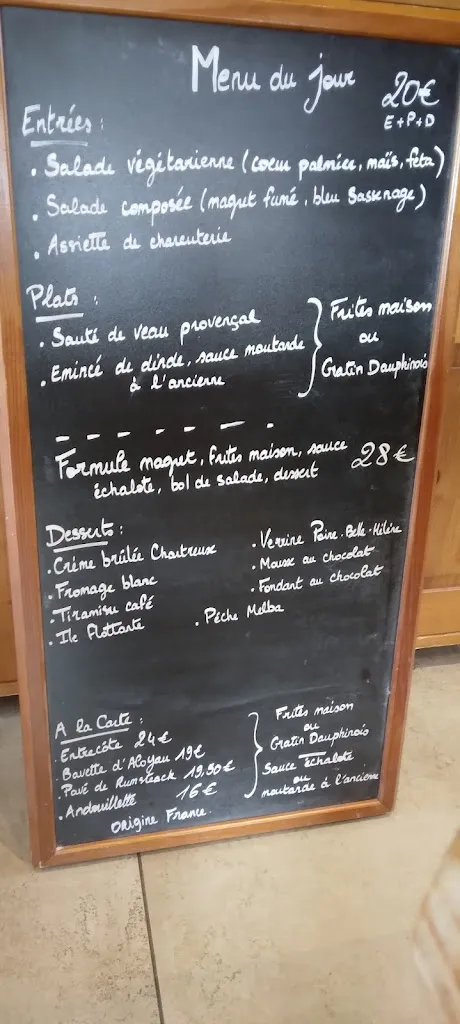 Menu du jour
20€
E+P+D
Entrées :
• Salade végétarienne (coeur palmier, maïs, feta)
• Salade composée (magret fumé, bleu Sassenage)
• Assiette de charcuterie
Plats :
• Sauté de veau provençal
• Emincé de dinde, sauce moutarde
à l'ancienne
Frites maison
ou
Gratin Dauphinois
Formule magret, frites maison, sauce
échalote, bol de salade, dessert
28€
Desserts :
• Crème brûlée Chartreuse
• Fromage blanc
• Tiramisu café
• Ile Flottante
• Verrine Poire-Belle-Hélène
• Mousse au chocolat
• Fondant au chocolat
• Pêche Melba
A la Carte :
• Entrecôte 24€
• Bavette d'Aloyau 19€
• Pavé de Rumsteack 19,90€
• Andouillette 16€
Frites maison
ou
Gratin Dauphinois
Sauce échalote
ou
moutarde à l'ancienne
ORigine France.